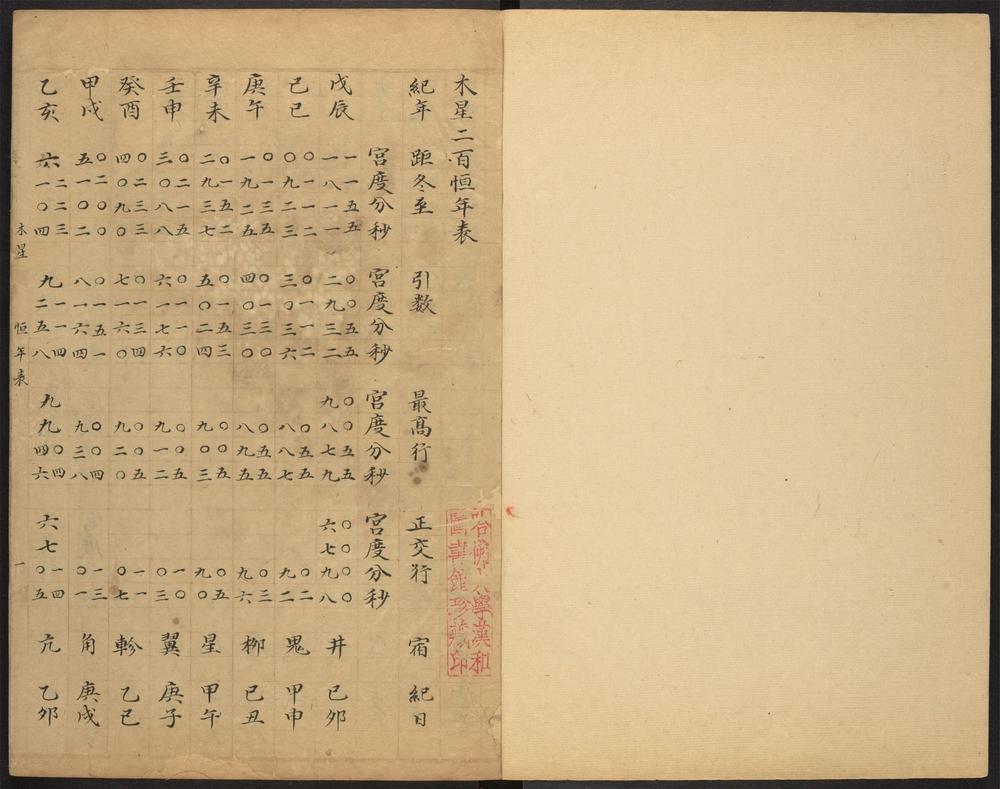 木星二百恒年表
哈佛大學漢和
圖書館珍藏印
紀年 距冬至 引数 最高行 正交行 宿 紀日
宮度分秒 宮度分秒 宮度分秒 宮度分秒
戊辰 一一五五 一八一一 〇〇五五 二九三二 〇〇五五 九八七九 〇〇〇〇 六七九八 井 己卯
己巳 〇一一二 〇九二三 〇一一二 三〇三六 〇五五 八八七 〇二 九二 鬼 甲申
庚午 〇一三五 一九二五 〇一三〇 四〇三〇 〇五五 八九五 〇三 九六 柳 己丑
辛未 〇一五二 二九三七 〇一五三 五〇二四 〇〇五 九〇三 〇五 九〇 星 甲午
壬申 〇二一五 三〇八八 〇一一〇 六一七六 〇〇五 九一二 一〇 〇三 翼 庚子
癸酉 〇二三三 四〇九〇 〇一三四 七一六〇 〇〇五 九二〇 一一 〇七 軫 乙巳
甲戌 〇二〇〇 五一〇二 〇一五一 八一六四 〇〇四 九三八 一三 〇一 角 庚戌
乙亥 二二三 六一〇四 一一四 九二五八 〇四 九九四六 一四 六七〇五 亢 乙卯
木星 恒年表 一